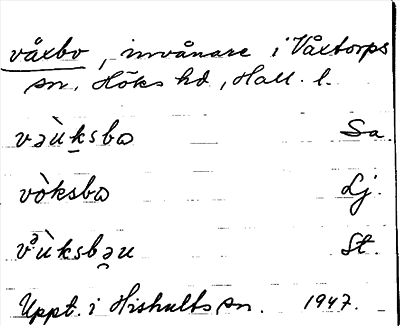 våxbo, invånare i Våxtorps
sn, Höks hd, Hall. l.
vəùk̲sbɷ Sa.
vòksbɷ Lj.
vᵊùksbə̯u St.
Uppt. i Hishults sn. 1947.